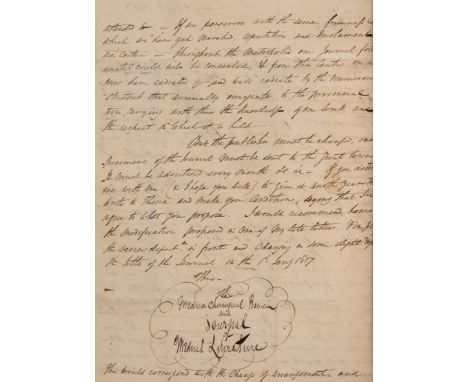 attended to — If you persevere with the same firmness in
which we have yet marched, reputation and emolument
are certain — throughout the Metropolis our Journal
could not be concealed, & from this centre
have and will radiate by the numerous
Students that annually emigrate to the provinces
carrying with them the knowledge of your work and
the respect in which it is held.
But the publisher must be changed, and
Specimens of the Journal must be sent to the great towns
It must be advertised every month &c &c — If you
me with me (& I hope you will) to give it another years
write to Thorne and make your conditions, saying that I
agree to what you propose. I would recommend, however
the modification proposed in one of my late letters. Viz.
the review depart^nt in front and changing in some slight
the title of the Journal on the 1^st Jan^y 1817.
Thus—
The
Medico Chirurgical Review
and
Journal
of
Medical Literature
This would correspond with the change of arrangement and